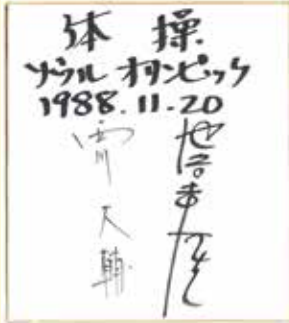 体操
ソウルオリンピック
1988.11.20
西川大輔